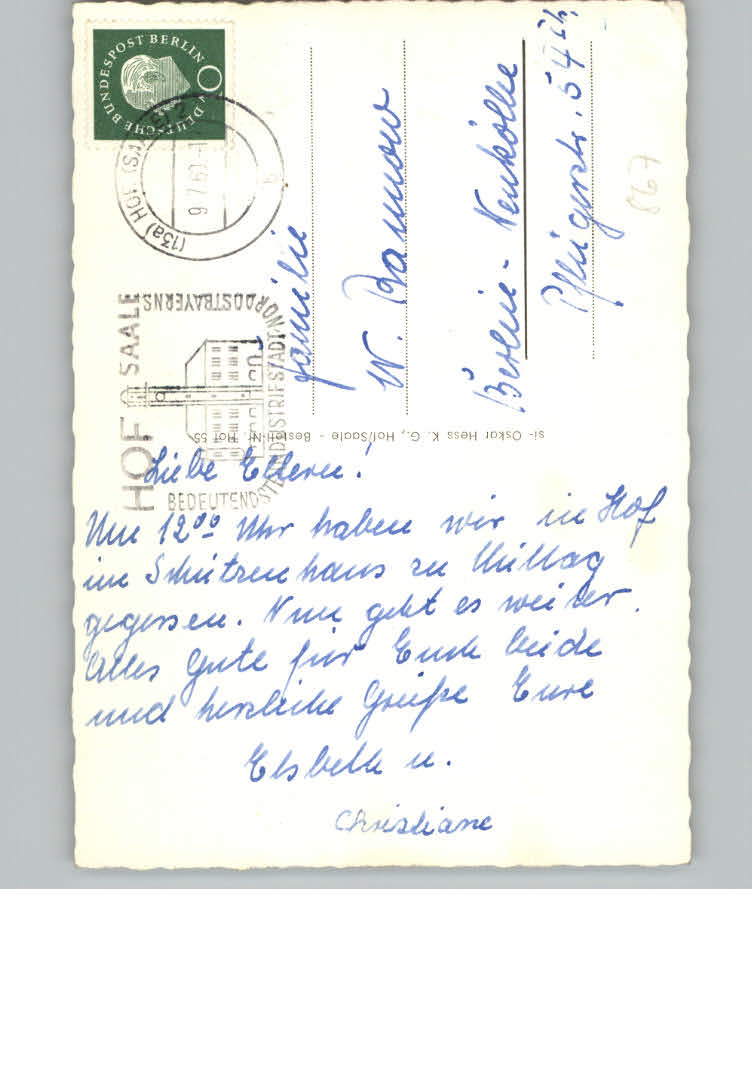 Liebe Eltern!
Um 12⁰⁰ Uhr haben wir in Hof
im Schützenhaus zu Mittag
gegessen. Nun geht es weiter.
Alles Gute für Euch beide
und herzliche Grüße Eure
Elsbeth u.
Christiane
Familie
W. Bannow
Berlin-Neukölln
Pflügerstr. 54
867
DEUTSCHE BUNDESPOST BERLIN
(13a) HOF (SAALE) 2
9.7.60
b
HOF SAALE
BEDEUTENDSTE INDUSTRIESTADT NORDOSTBAYERNS
Oskar Hess K. G., Hof/Saale - Bestell-Nr. Hof 55